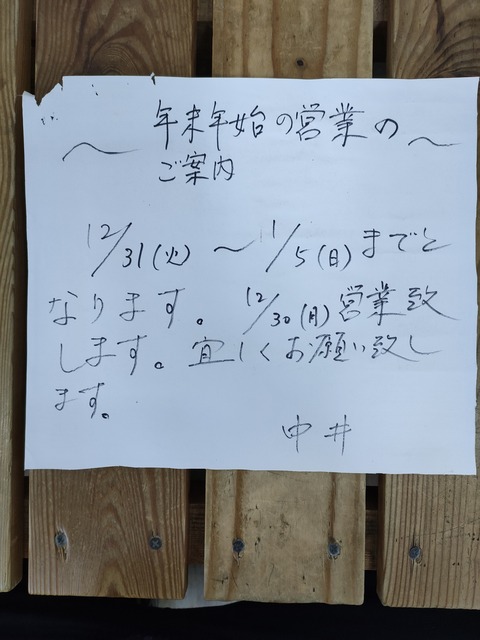 〜 年末年始の営業の 〜
ご案内
12/31(火) 〜 1/5(日)までと
なります。 12/30(月)営業致
します。宜しくお願い致し
ます。
中井